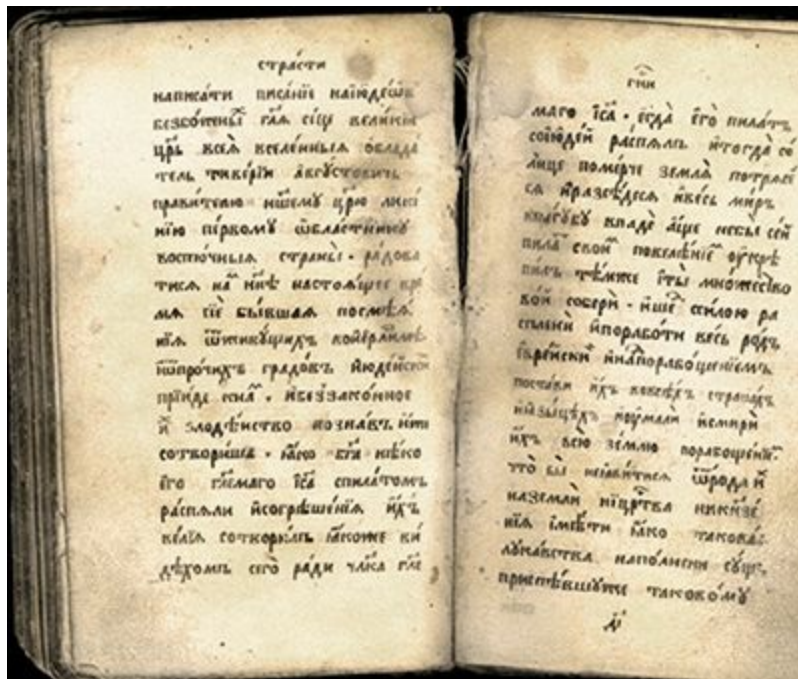 стра́сти
написа́ти писа́нїе наїюде́ѡвъ
безбо́жныⷯ гл҃ѧ си́це вели́кїи
цр҃ь всеѧ̀ вселе́нныѧ облада
тель тиве́рїи а́вгустовичь
прави́телю на́шему
нїю пе́рвому ѡбластнику
восто́чныѧ страны̀ · ра́дова
тисѧ настоѧ́щее вре́
мѧ сїѐ бы́вшаѧ
нїѧ ѿживꙋ́щихъ
ѿпро́чихъ градо́въ їюде́йскихъ
прїи́де · ибеззако́нное
и҆ злодѣ́йство позна́въ
сотвори́ша · ꙗ҆́ко бг҃а нѣ́ко
его гл҃емаго і҆с҃а спила́томъ
распѧ́ли исогрѣше́нїѧ и҆́хъ
ве́лїѧ сотвори́лъ ꙗ҆́коже ви́
дѣхомъ сего̀ ра́ди чл҃ка гл҃е
гн҃и
маго і҆с҃а · е҆гда̀ е҆го̀ пила́тъ
соїюде́й распѧ́лъ и҆тогда̀ со́
лнце поме́рче землѧ̀ потрѧсе́
сѧ и҆разсѣ́десѧ и҆ве́сь ми́ръ
впадѐ а҆́ще небы̀ се́й
пила́ⷮ свои́ⷨ повелѣ́нїеⷨ оу҆крѣ
пи́лъ тѣ́мже і҆ты̀ мно́жество
во́й соберѝ · си́лою ра
спленѝ и҆порабо́ти ве́сь ро́дъ
е҆вре́йскиⷯ порабоще́нїемъ
поста́ви и҆́хъ вовсѣ́хъ страна́хъ
и҆ꙗзы́цѣхъ и҆оу҆малѝ и҆смирѝ
и҆́хъ всю̀ зе́млю порабоще́нїеⷨ
что̀ бы̀ неꙗви́тисѧ ѿро́да и҆́ⷯ
наземлѝ ницрⷭ҇тва
нїѧ и҆мѣ́ти ꙗ҆́ко такова́го
лука́вства напо́лнени су́ще
приспѣ́вшуже таково́му